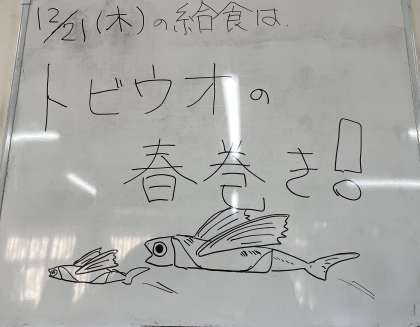 12/21(木)の給食は.
トビウオの
春巻き!